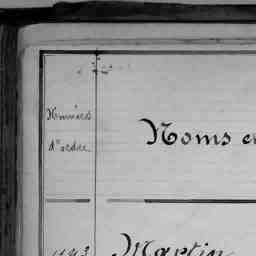 Numéros
d'ordre
Noms e
Martin